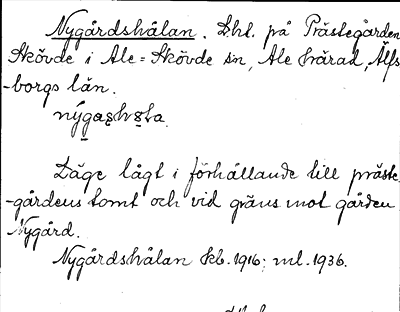 Nygårdshålan. Lht. på Prästegården
Skövde i Ale-Skövde sn, Ale härad, Älfs
-borgs län.
Läge lågt i förhållande till präste
-gårdens tomt och vid gräns mot gården
Nygård.
Nygårdshålan kb. 1916; ml. 1936.